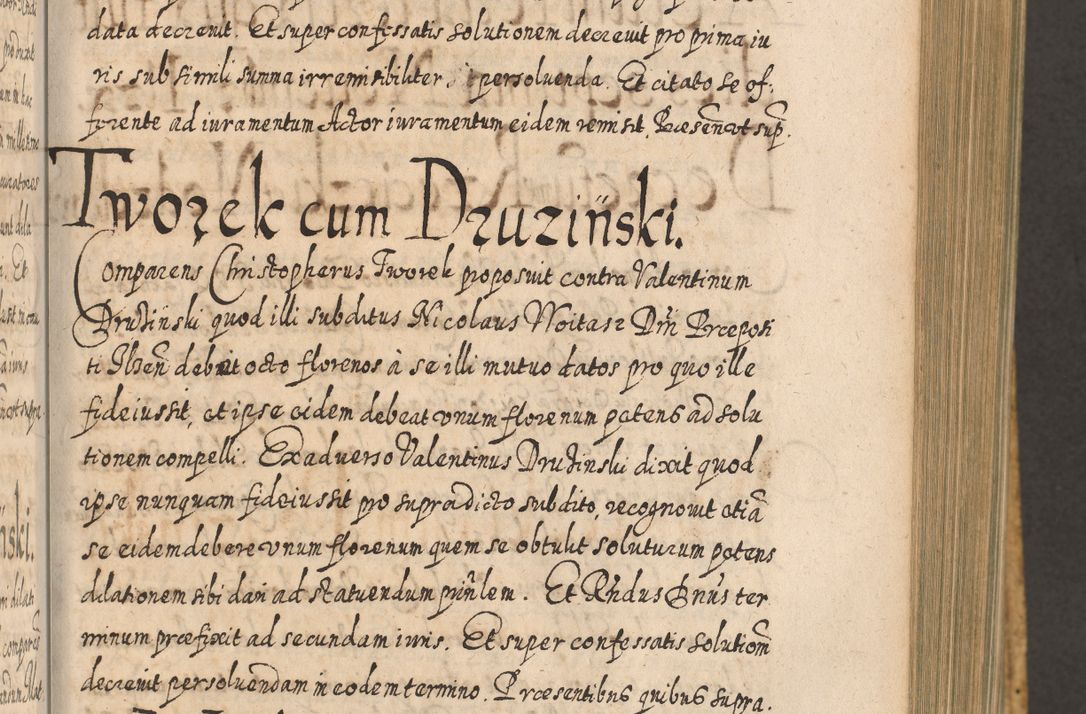 data decrevit. Et super confessatis solutionem decrevit pro prima iu
ris sub simili summa irremisibiliter persoluenda. Et citato se of:
ferente ad iuramentum Actor iuramentum eidem remisit. Præsen̄ ut sup̄.
Tworek cum Druziński.
Comparens Christopherus Tworek proposuit contra Valentinum
Druziński quod illi subditus Nicolaus Woitasz Dn̄i Præposi
ti debuit octo florenos à se illi mutuo datos pro quo ille
fideiussit, et ipse eidem debeat vnum florenum petens ad solu
tionem compelli. Ex aduerso Valentinus Druzinski dixit quod
ipse nunquam fideiussit pro supradicto subdito, recognovit etiā
se eidem debere vnum florenum quem se obtulit soluturum petens
dilationem sibi dari ad statuendum prin̄lem. Et Rn̄dus Dn̄us ter
minum præfixit ad secundam iuris. Et super confessatis solutiom̄
decrevit persoluendam in eodem termino. Præsentibus quibus supra.